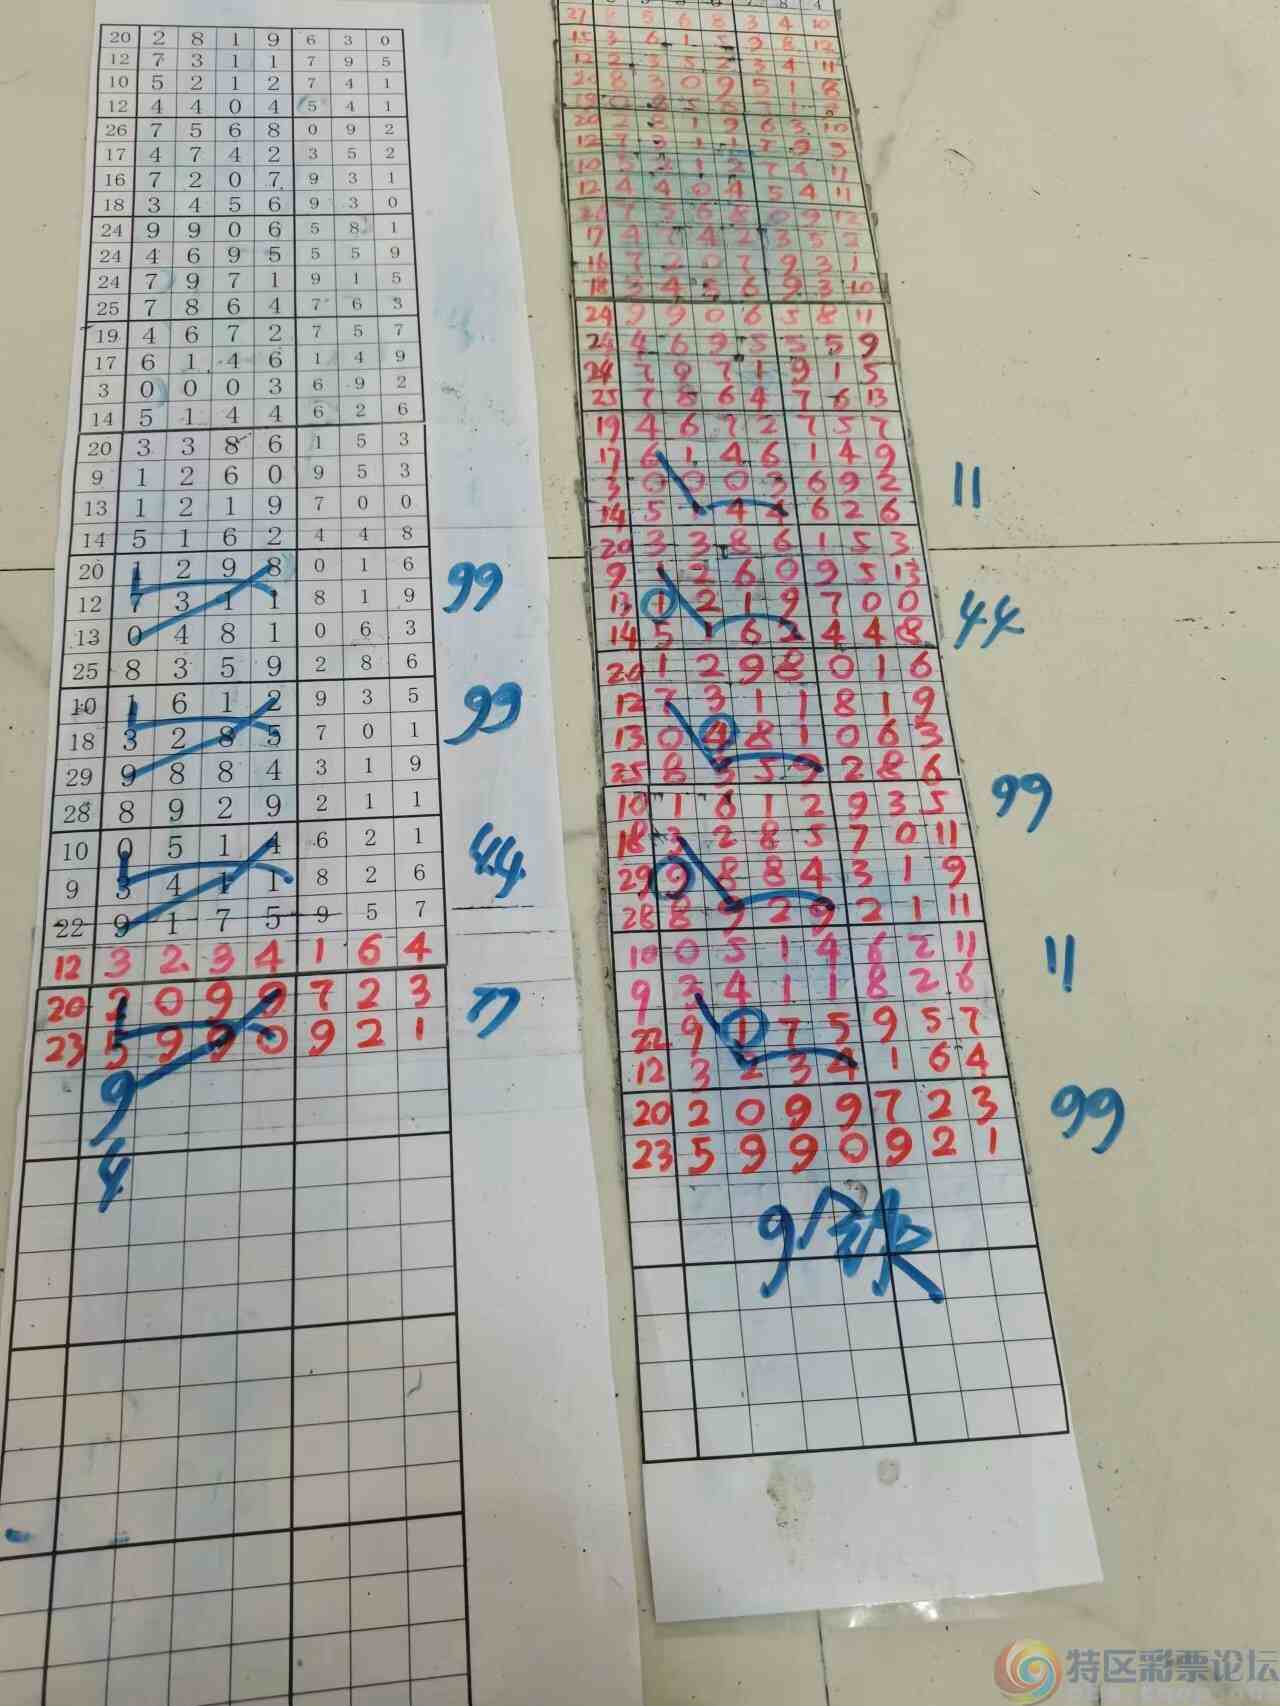 20 2 8 1 9 6 3 0
12 7 3 1 1 7 9 5
10 5 2 1 2 7 4 1
12 4 4 0 4 5 4 1
26 7 5 6 8 0 9 2
17 4 7 4 2 3 5 2
16 7 2 0 7 9 3 1
18 3 4 5 6 9 3 0
24 9 9 0 6 5 8 1
24 4 6 9 5 5 5 9
24 7 9 7 1 9 1 5
25 7 8 6 4 7 6 3
19 4 6 7 2 7 5 7
17 6 1 4 6 1 4 9
3 0 0 0 3 6 9 2
14 5 1 4 4 6 2 6
20 3 3 8 6 1 5 3
9 1 2 6 0 9 5 3
13 1 2 1 9 7 0 0
14 5 1 6 2 4 4 8
20 1 2 9 8 0 1 6
99
12 7 3 1 1 8 1 9
13 0 4 8 1 0 6 3
25 8 3 5 9 2 8 6
10 1 6 1 2 9 3 5
99
18 3 2 8 5 7 0 1
29 9 8 8 4 3 1 9
28 8 9 2 9 2 1 1
10 0 5 1 4 6 2 1
44
9 3 4 1 1 8 2 6
22 9 1 7 5 9 5 7
12 3 2 3 4 1 6 4
20 2 0 9 9 7 2 3
77
23 5 9 9 0 9 2 1
9
4
27 8 5 6 8 3 4 10
15 3 6 1 5 9 8 12
12 2 3 5 2 3 4 11
20 8 3 0 9 5 1 8
20 2 8 1 9 6 3 10
12 7 3 1 1 7 9 5
10 5 2 1 2 7 4 11
12 4 4 0 4 5 4 11
26 7 5 6 8 0 9 12
17 4 7 4 2 3 5 2
16 7 2 0 7 9 3 1
18 3 4 5 6 9 3 10
24 9 9 0 6 5 8 11
24 4 6 9 5 5 5 9
24 7 9 7 1 9 1 5
25 7 8 6 4 7 6 13
19 4 6 7 2 7 5 7
17 6 1 4 6 1 4 9
3 0 0 0 3 6 9 2
11
14 5 1 4 4 6 2 6
20 3 3 8 6 1 5 3
9 1 2 6 0 9 5 13
13 1 2 1 9 7 0 0
44
14 5 1 6 2 4 4 8
20 1 2 9 8 0 1 6
12 7 3 1 1 8 1 9
13 0 4 8 1 0 6 3
25 8 3 5 9 2 8 6
99
10 1 6 1 2 9 3 5
18 3 2 8 5 7 0 11
29 9 8 8 4 3 1 9
28 8 9 2 9 2 1 11
10 0 5 1 4 6 2 11
11
9 3 4 1 1 8 2 6
22 9 1 7 5 9 5 7
12 3 2 3 4 1 6 4
20 2 0 9 9 7 2 3
99
23 5 9 9 0 9 2 1
特区彩票论坛